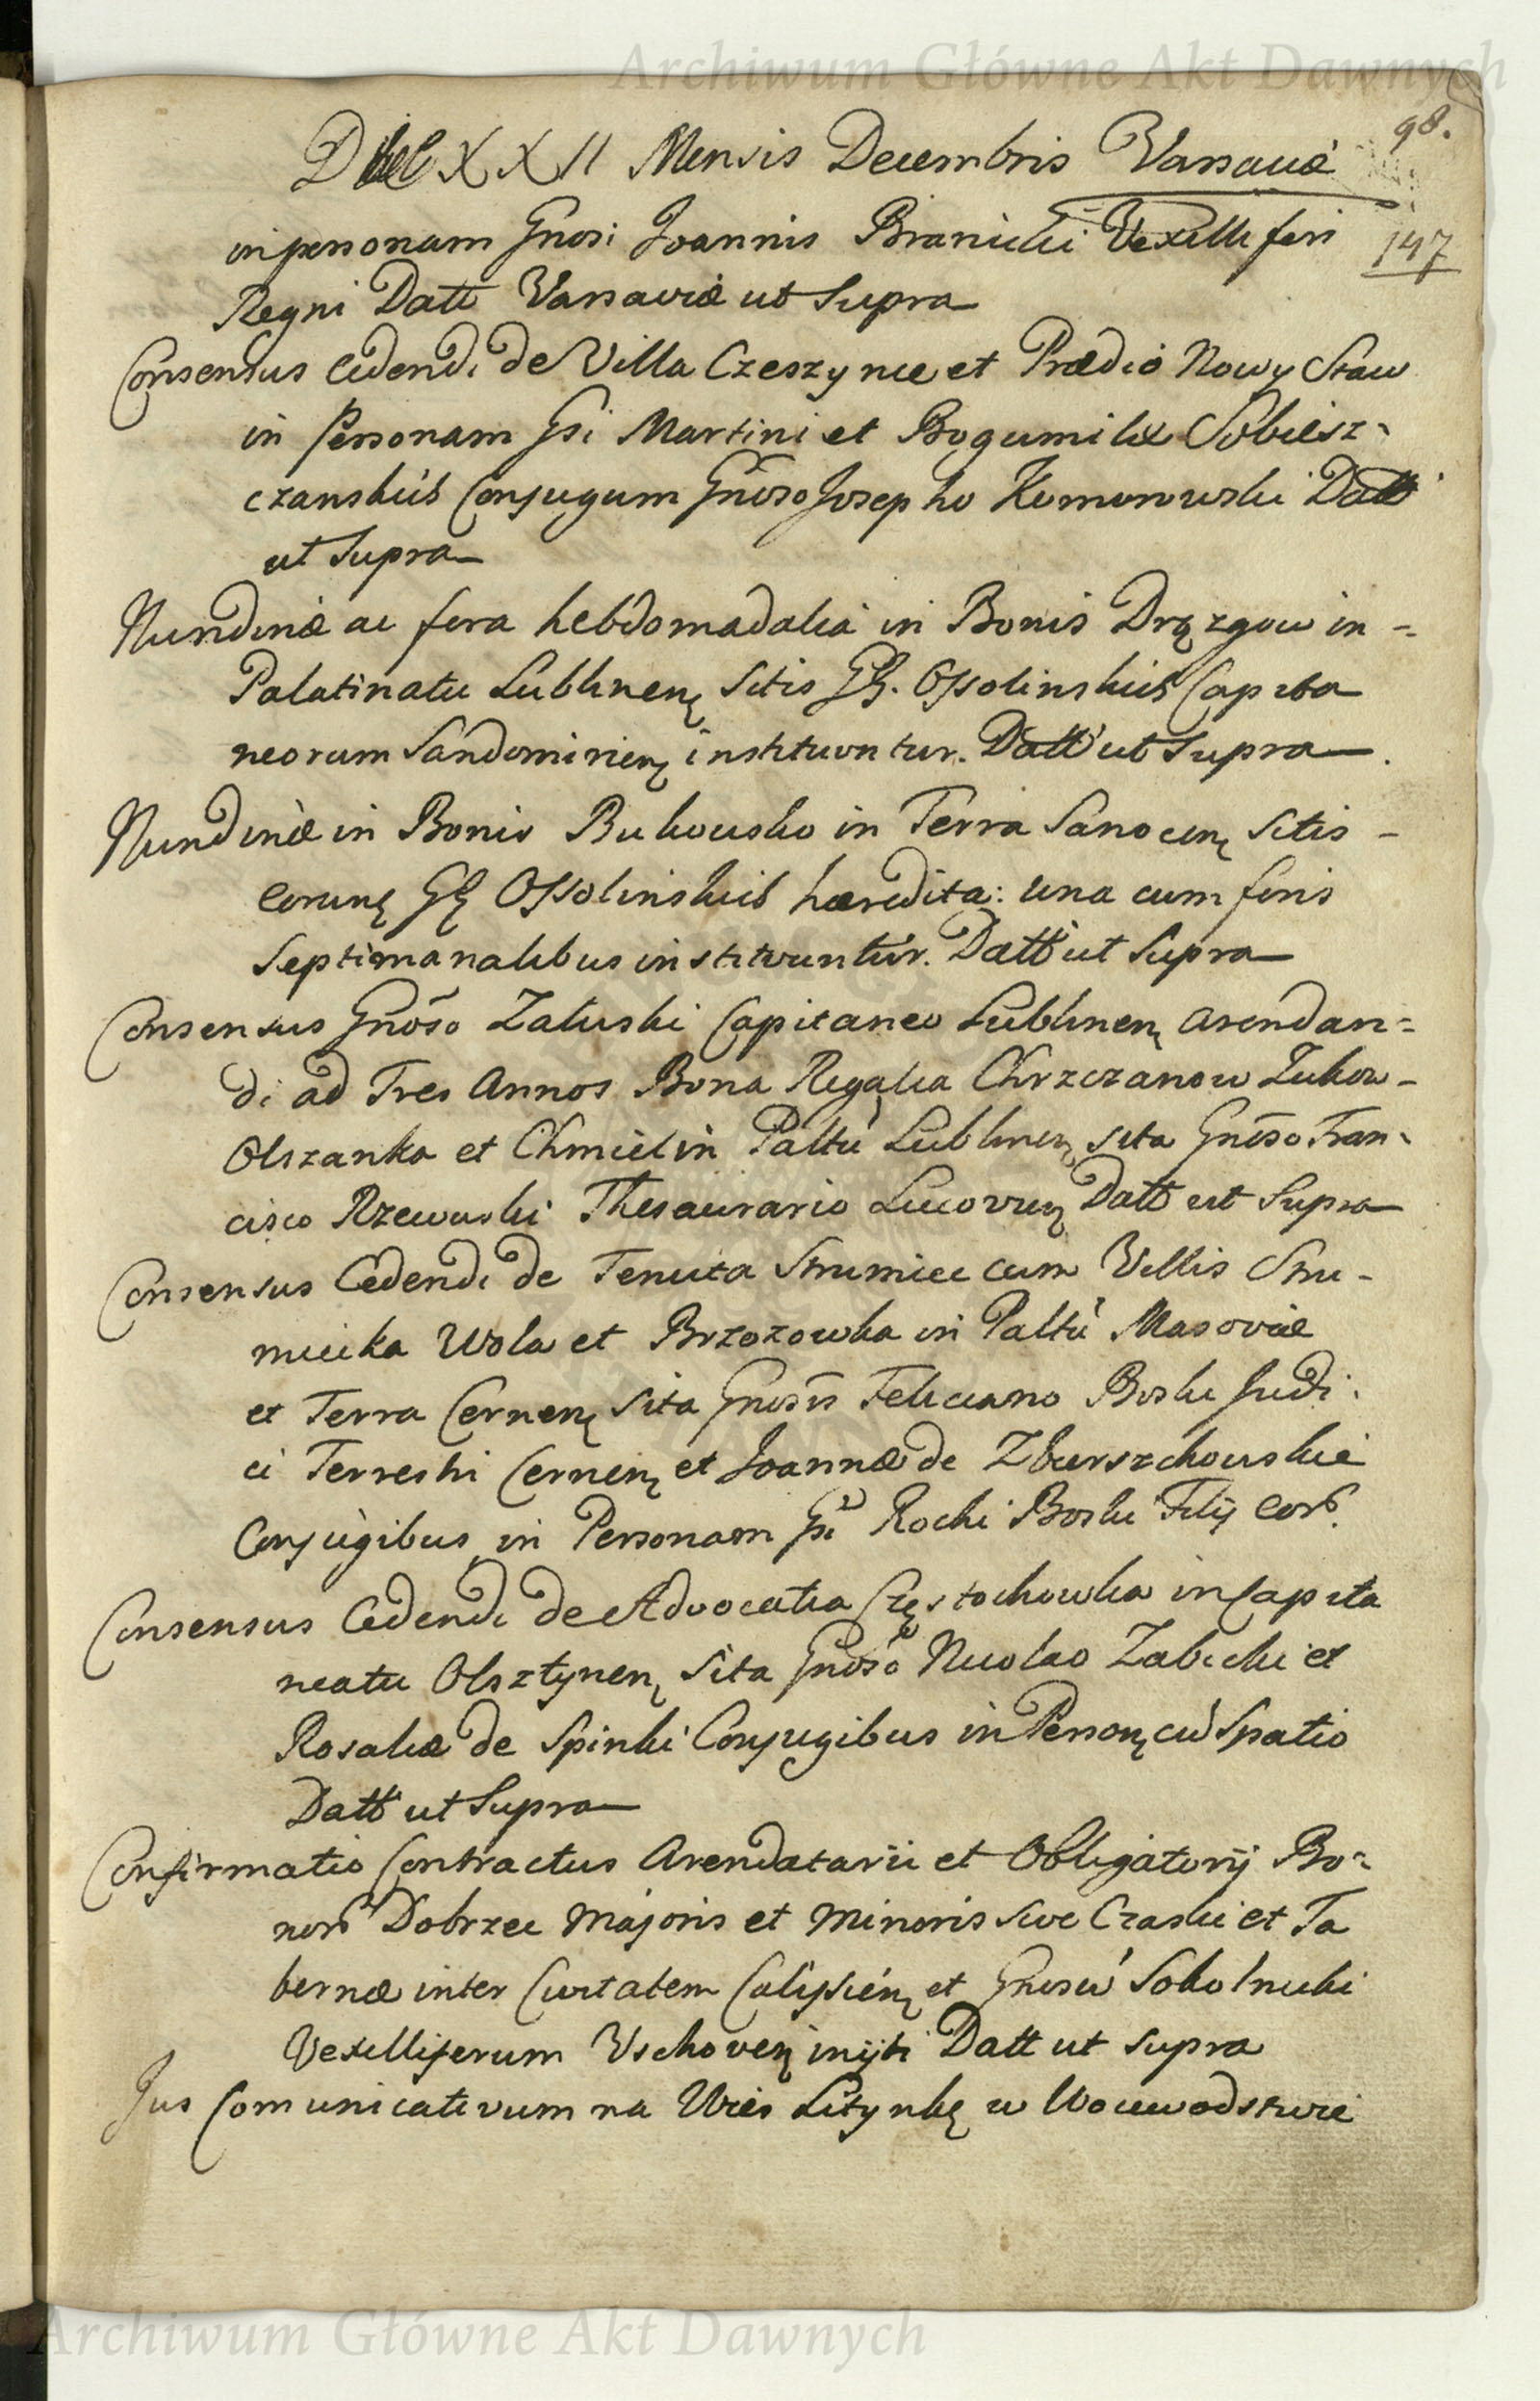 Archiwum Główne Akt Dawnych
98.
Die XXII Mensis Decembris Varsaviæ
147
in personam Gnosi Joannis Branicki Vexilliferi
Regni Datt Varsaviæ ut Supra
Consensus Cedendi de Villa Czeszynie et Prædio Nowy Staw
in Personam Gsi Martini et Bogumilæ Sobiesz-
czanskich Conjugum Gnoso Josepho Komorowski Datt
ut Supra
Nundinæ ac fora hebdomadalia in Bonis Drązgow in =
Palatinatu Lublinen. Sitis GG. Ossolinskich Capita
neorum Sandomirien. instituontur. Datt ut Supra.
Nundinæ in Bonis Bukowsko in Terra Sanocen. Sitis -
eorund. GG Ossolinskich hæredita: una cum foris
Septimanalibus instituuntur. Datt ut Supra
Consensus Gnoso Zaluski Capitaneo Lublinen. arendan=
di ad Tres Annos Bona Regalia Chrzczanow Zukow-
Olszanka et Chmiel in Paltu Lublinen. sita Gnoso Fran-
cisco Rzewuski Thesaurario Lucovien. Datt ut Supra
Consensus Cedendi de Tenuta Strumiec cum Villis Stru-
miecka Wola et Brzozowka in Paltu Masoviæ
et Terra Cernen. Sita Gnosis Feliciano Boski Judi-
ci Terrestri Cernen. et Joannæ de Zbierszchowskie
Conjugibus in Personam Gsi Rochi Boski Filij eor.
Consensus Cedendi de Advocatia Częstochowka in Capita
neatu Olsztynen. Sita Gnoso Nicolao Zabicki et
Rosaliæ de Spinki Conjugibus in Person. cu Spatio
Datt ut Supra
Confirmatio Contractus Arendatarii et Obligatorij Bo-
nor. Dobrzec Majoris et Minoris sive Czaski et Ta
bernæ inter Civitatem Calissien. et Gnosu Sokolnicki
Vexilliferum Vschoven. inijti Datt ut Supra
Jus Comunicativum na Wies Litynkę w Woiewodstwie
Archiwum Główne Akt Dawnych